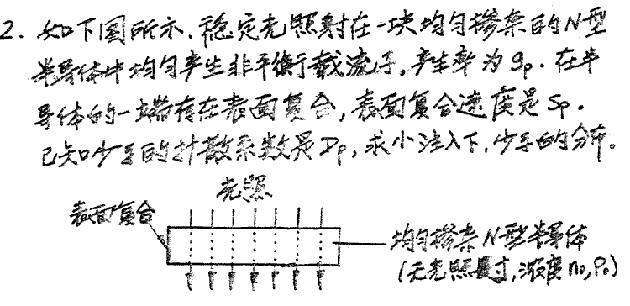 2. 如下图所示,稳定光照射在一块均匀掺杂的N型
半导体中均匀产生非平衡载流子,产生率为gp.在半
导体的一端存在表面复合,表面复合速度是Sp.
已知少子的扩散系数是Dp,求小注入下,少子的分布.
光照
表面复合
均匀掺杂N型半导体
(无光照时,浓度n0,P0)